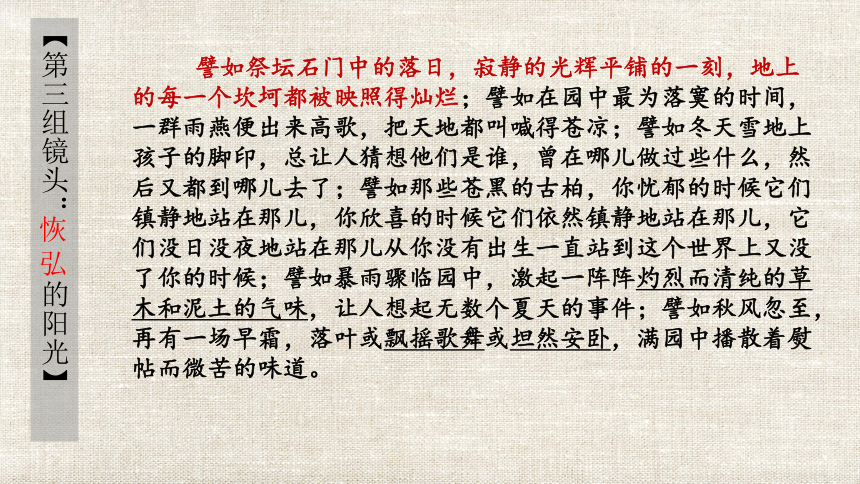 【第三组镜头：恢弘的阳光】
譬如祭坛石门中的落日，寂静的光辉平铺的一刻，地上
的每一个坎坷都被映照得灿烂；譬如在园中最为落寞的时间，
一群雨燕便出来高歌，把天地都叫喊得苍凉；譬如冬天雪地上
孩子的脚印，总让人猜想他们是谁，曾在哪儿做过些什么，然
后又都到哪儿去了；譬如那些苍黑的古柏，你忧郁的时候它们
镇静地站在那儿，你欣喜的时候它们依然镇静地站在那儿，它
们没日没夜地站在那儿从你没有出生一直站到这个世界上又没
了你的时候；譬如暴雨骤临园中，激起一阵阵灼烈而清纯的草
木和泥土的气味，让人想起无数个夏天的事件；譬如秋风忽至，
再有一场早霜，落叶或飘摇歌舞或坦然安卧，满园中播散着熨
帖而微苦的味道。